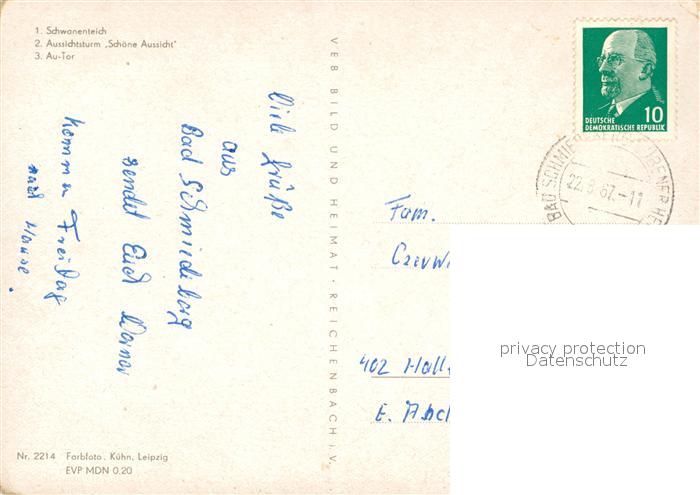 1. Schwanenteich
2. Aussichtsturm „Schöne Aussicht"
3. Au-Tor
Viele Grüße
aus
Bad Schmiedeberg
sendet Euch Werner
Komme Freitag
nach Hause.
VEB BILD UND HEIMAT · REICHENBACH i. V.
10
DEUTSCHE
DEMOKRATISCHE REPUBLIK
BAD SCHMIE
22.8.67.-11
Fam.
Czerw
402 Hall
E. Abel
privacy protection
Datenschutz
Nr. 2214 Farbfoto: Kühn, Leipzig
EVP MDN 0,20